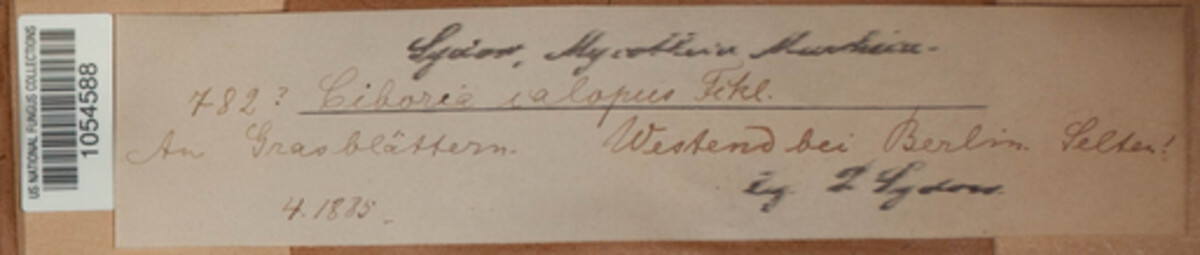 US NATIONAL FUNGUS COLLECTIONS
1054588
Sydow, Mycotheca Marchica.
782? Ciboria calopus Fckl.
An Grasblättern. Westend bei Berlin. Selten!
4. 1885 Sydow.